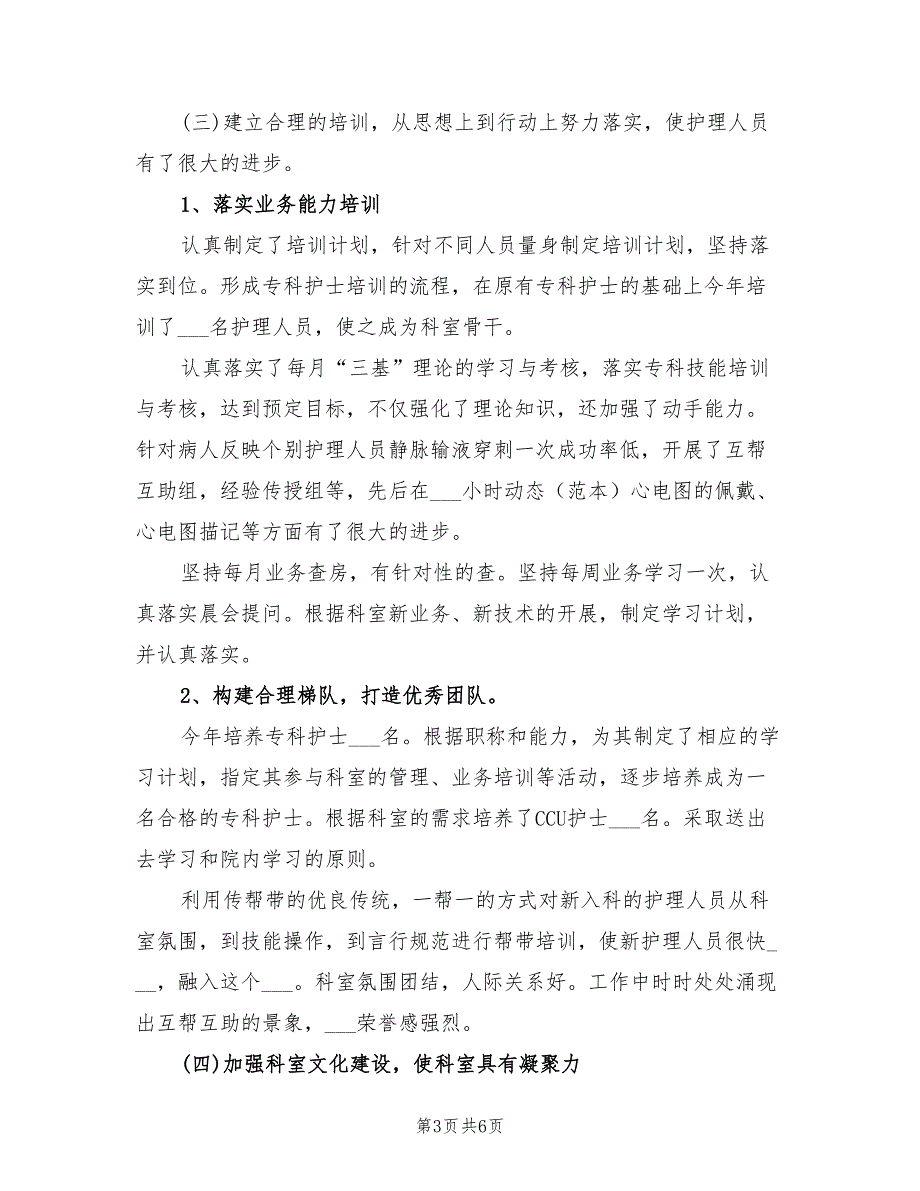 (三)建立合理的培训，从思想上到行动上努力落实，使护理人员
有了很大的进步。
1、落实业务能力培训
认真制定了培训计划，针对不同人员量身制定培训计划，坚持落
实到位。形成专科护士培训的流程，在原有专科护士的基础上今年培
训了___名护理人员，使之成为科室骨干。
认真落实了每月“三基”理论的学习与考核，落实专科技能培训
与考核，达到预定目标，不仅强化了理论知识，还加强了动手能力。
针对病人反映个别护理人员静脉输液穿刺一次成功率低，开展了互帮
互助组，经验传授组等，先后在___小时动态（范本）心电图的佩戴、
心电图描记等方面有了很大的进步。
坚持每月业务查房，有针对性的查。坚持每周业务学习一次，认
真落实晨会提问。根据科室新业务、新技术的开展，制定学习计划，
并认真落实。
2、构建合理梯队，打造优秀团队。
今年培养专科护士___名。根据职称和能力，为其制定了相应的学
习计划，指定其参与科室的管理、业务培训等活动，逐步培养成为一
名合格的专科护士。根据科室的需求培养了CCU护士___名。采取送出
去学习和院内学习的原则。
利用传帮带的优良传统，一帮一的方式对新入科的护理人员从科
室氛围，到技能操作，到言行规范进行帮带培训，使新护理人员很快_
__，融入这个___。科室氛围团结，人际关系好。工作中时时处处涌现
出互帮互助的景象，___荣誉感强烈。
(四)加强科室文化建设，使科室具有凝聚力
第3页共6页